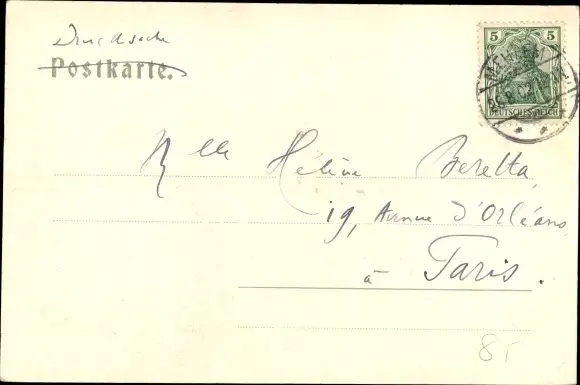 Drucksache
Postkarte.
5 5
DEUTSCHES REICH
26.8.02
Mlle Hélène Beretta,
19, Avenue d'Orléans
à Paris.